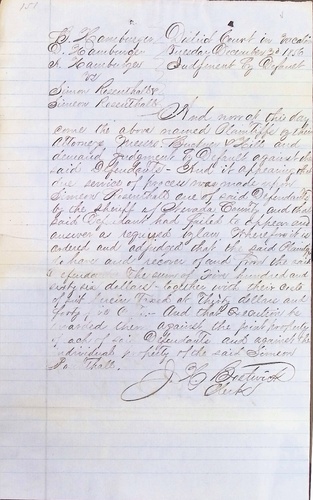 151
S. Hamburger District Court in Vacati
E. Hamburger Tuesday December 30 1856
S. Hamburger Judgment by Default
vs
Simon Rosenthall &
Simeon Rosenthall
And now at this day
comes the above named Plaintiffs by their
Attorneys Messrs Buckner & Hill and
demand Judgment by Default against the
said Defendants - And it appearing that
due service of process was made upon
Simeon Rosenthall one of said Defendants
by the Sheriff of Nevada County and that
said Defendant had failed to appear and
answer as required by law Wherefore it is
ordered and adjudged that the said Plaintiffs
have and recover of and from the said
The sum of Five hundred and
sixty six dollars - together with their costs
of suit herein taxed at Thirty dollars and
forty And that execution be
against the joint property
of said Defendants and against the
individual property of the said Simeon
J. H. Bostwick
Clerk